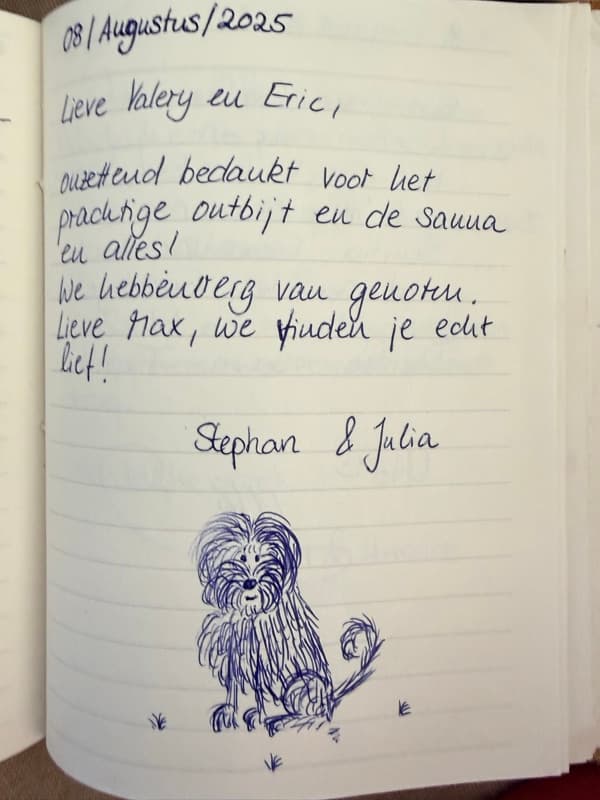 08/Augustus/2025
Lieve Valery en Eric,
onzettend bedankt voor het
prachtige outbijt en de sauna
en alles!
We hebben erg van genoten.
Lieve Max, we vinden je echt
lief!
Stephan & Julia